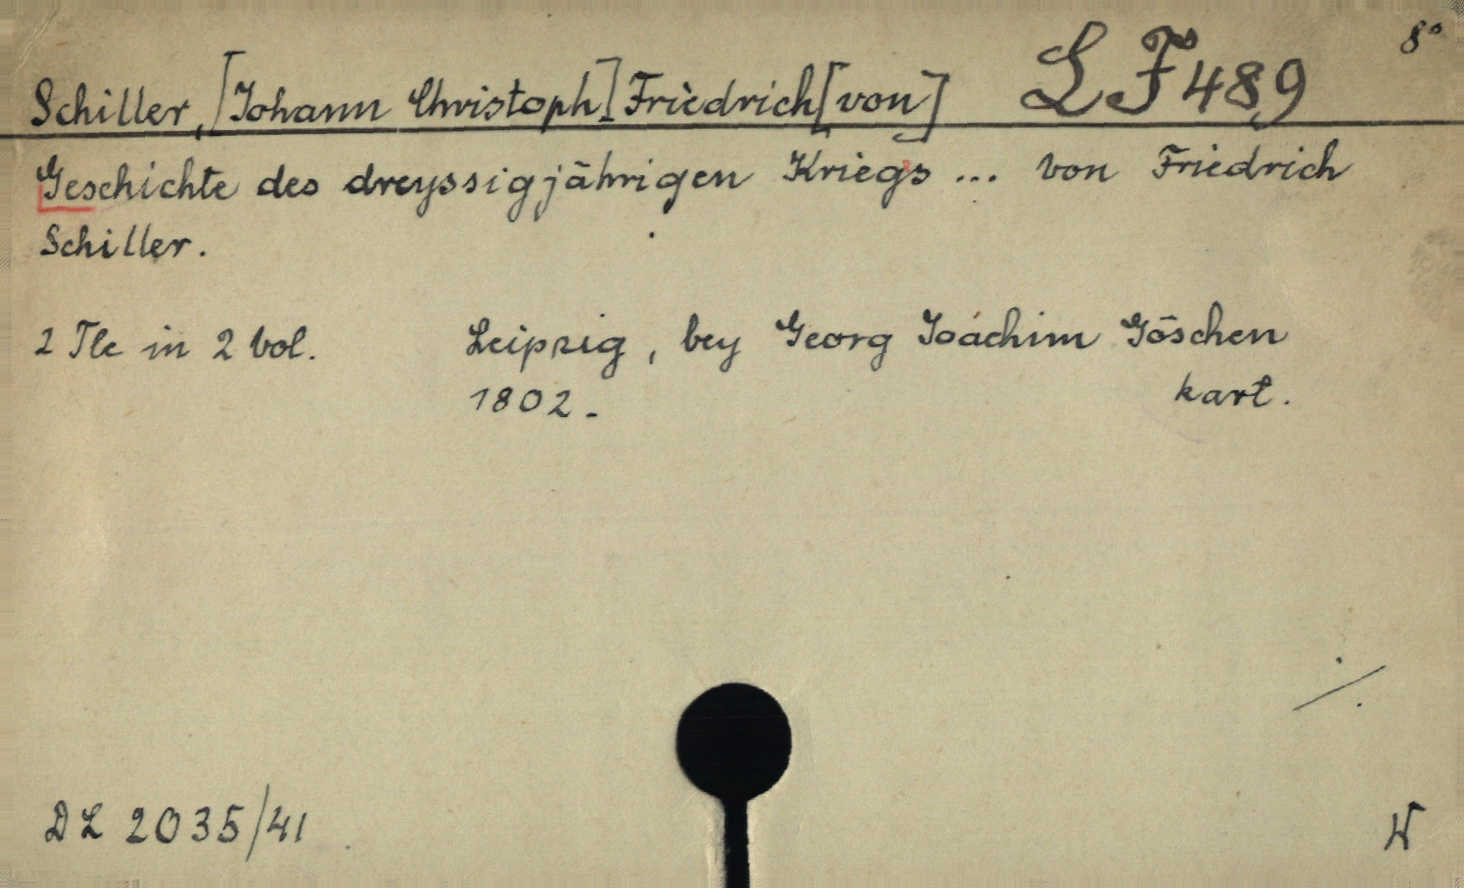 8°
Schiller, [Johann Christoph] Friedrich [von] LF 489
Geschichte des dreyssigjährigen Kriegs ... von Friedrich
Schiller.
2 Tle in 2 vol. Leipzig, bey Georg Joachim Göschen
1802. kart.
DL 2035/41